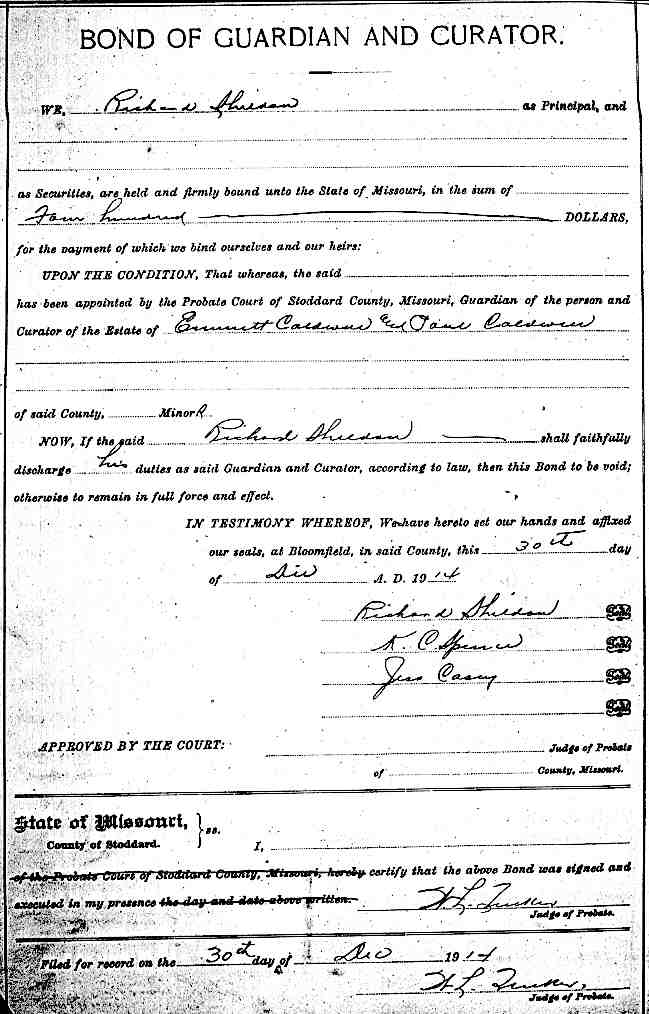 BOND OF GUARDIAN AND CURATOR.
WE, Richard Sheldon as Principal, and
as Securities, are held and firmly bound unto the State of Missouri, in the sum of
Four hundred DOLLARS,
for the payment of which we bind ourselves and our heirs:
UPON THE CONDITION, That whereas, the said
has been appointed by the Probate Court of Stoddard County, Missouri, Guardian of the person and
Curator of the Estate of Emmett Caldwell and Paul Caldwell
of said County, Minor
NOW, If the said Richard Sheldon shall faithfully
discharge his duties as said Guardian and Curator, according to law, then this Bond to be void;
otherwise to remain in full force and effect.
IN TESTIMONY WHEREOF, We have hereto set our hands and affixed
our seals, at Bloomfield, in said County, this 30th day
of Dec A. D. 1914
Richard Sheldon Seal
K. C. Spence Seal
Jess Casey Seal
Seal
APPROVED BY THE COURT: Judge of Probate
of County, Missouri.
State of Missouri, } ss.
County of Stoddard. I,
of the Probate Court of Stoddard County, Missouri, hereby certify that the above Bond was signed and
executed in my presence the day and date above written. W. L. Tucker
Judge of Probate.
Filed for record on the 30th day of Dec 1914
W. L. Tucker,
Judge of Probate.